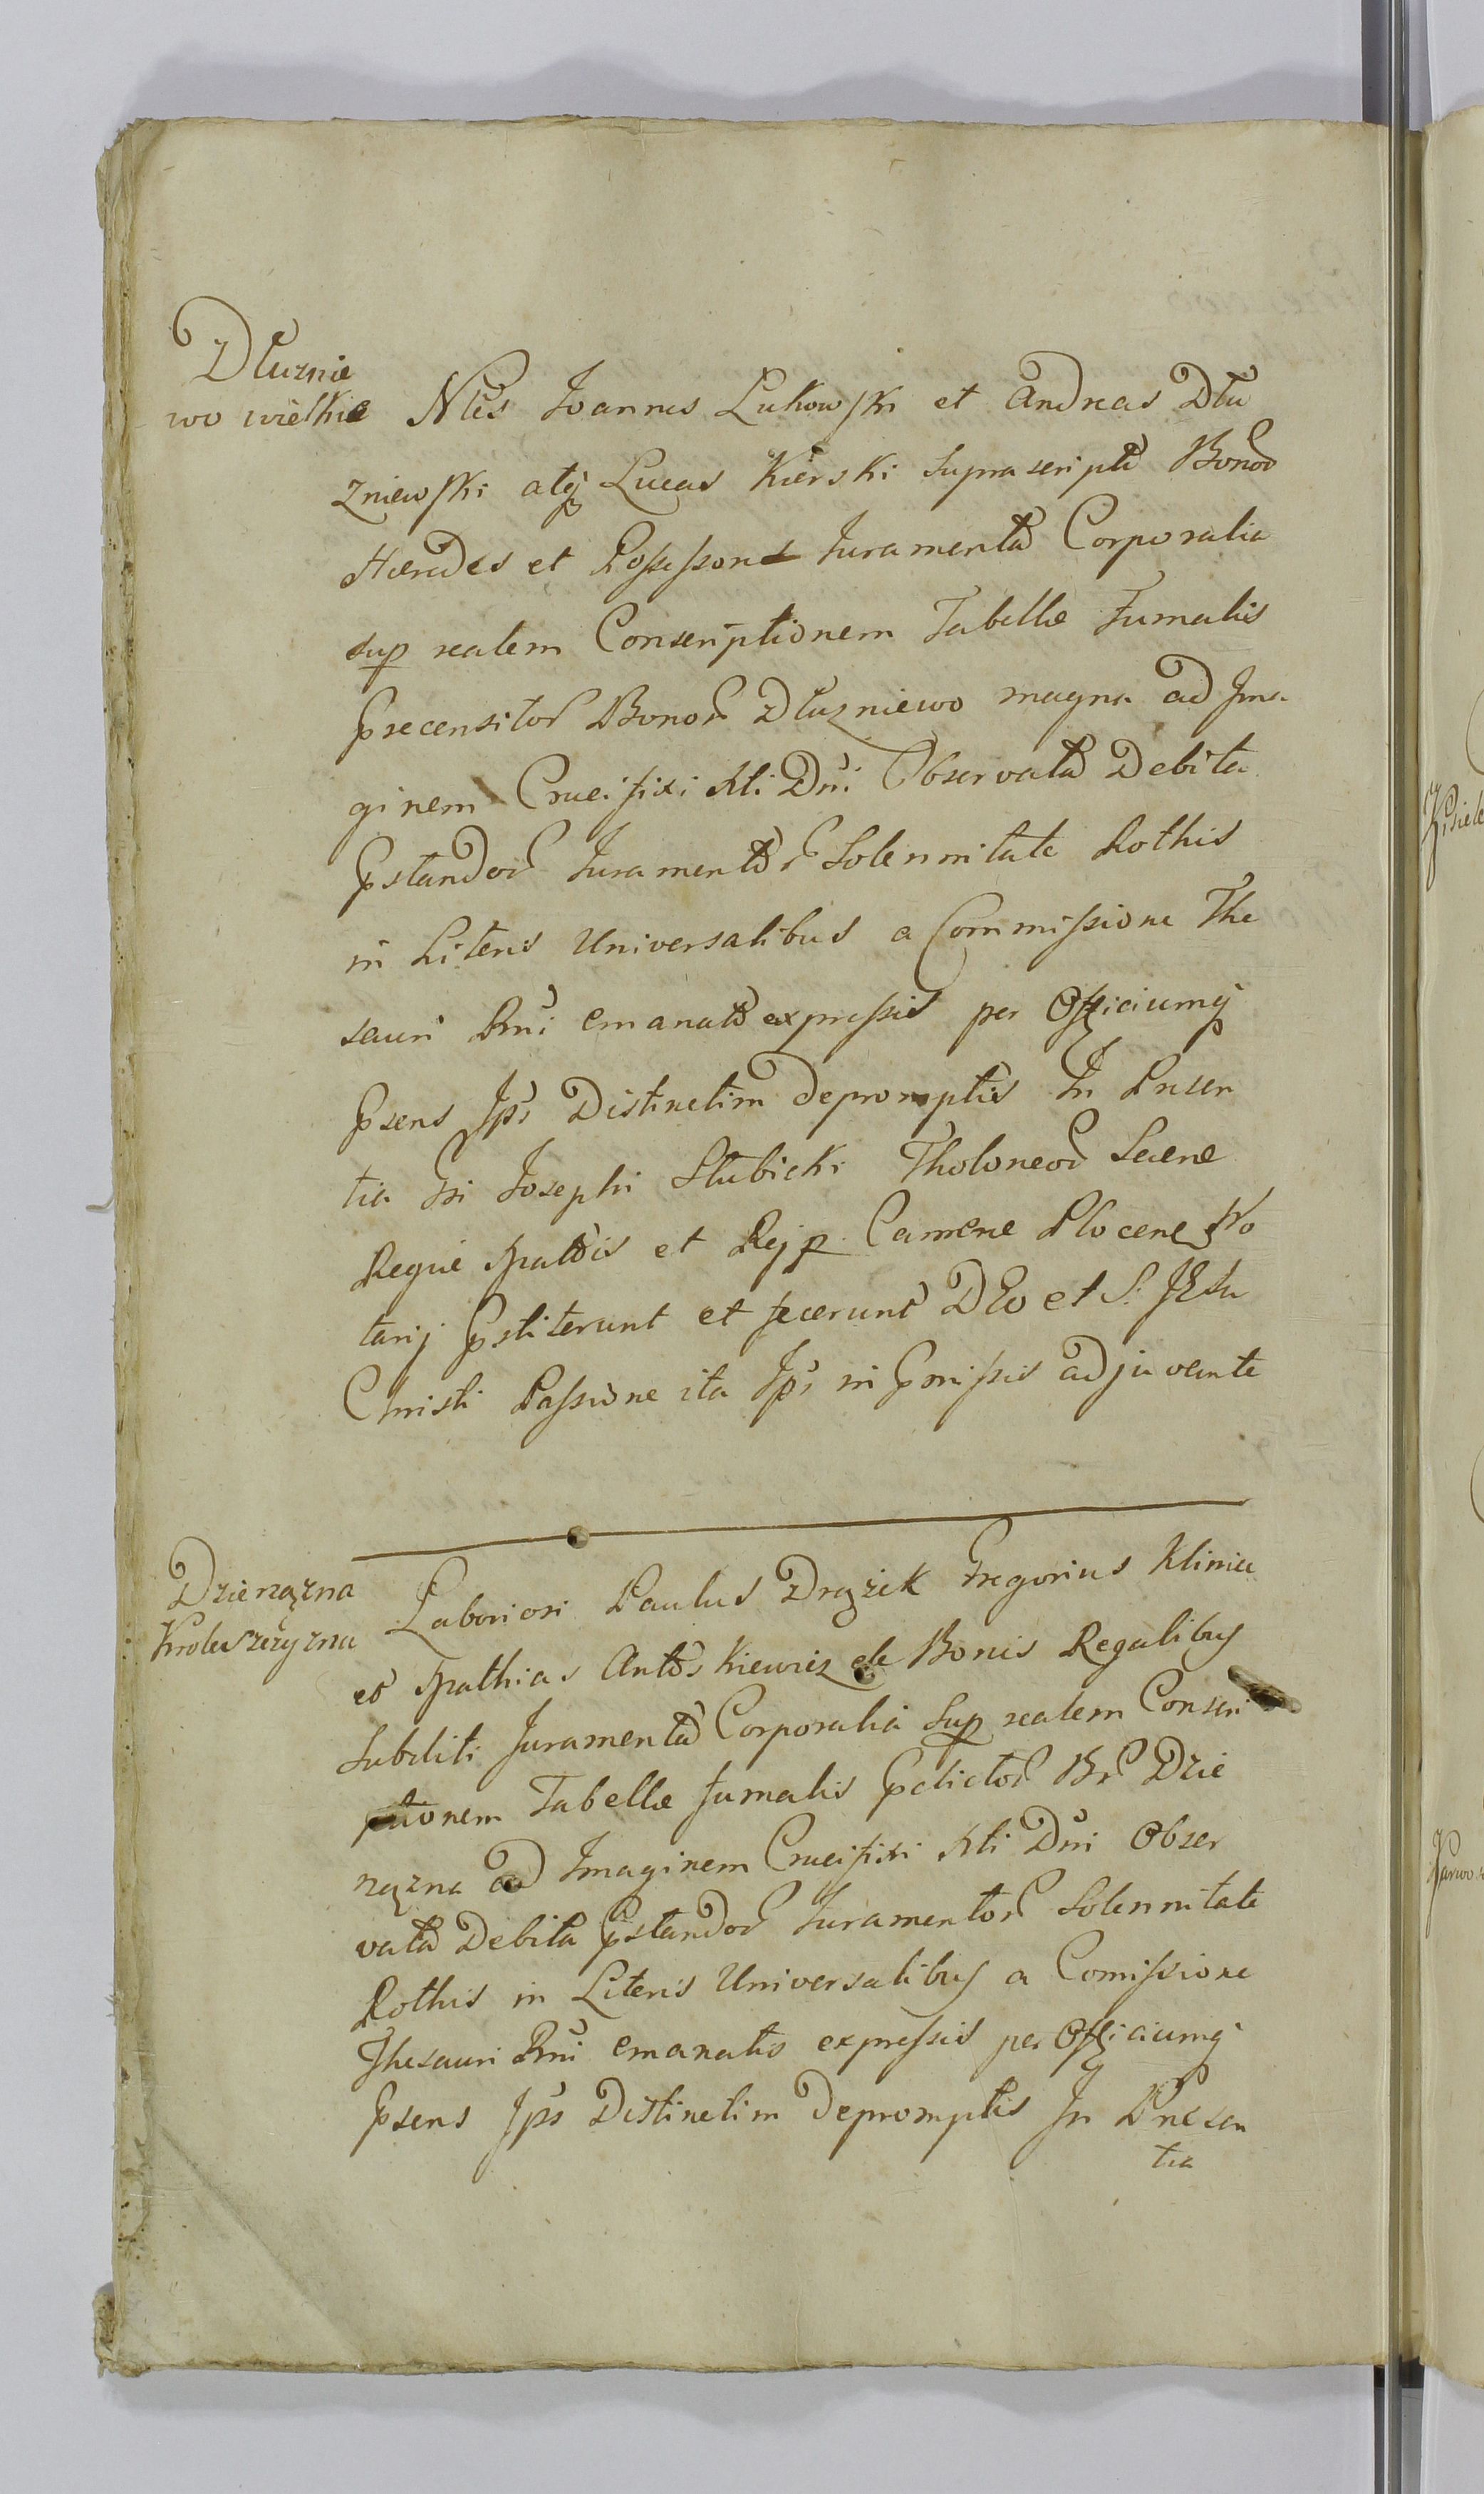 Dłuznie
wo wielkie
Nles Joannes Łukowski et Andreas Dłu
zniewski atq Lucas Kierski suprascript Bonor
Hæredes et Possessores Juramenta Corporalia
sup realem Conscriptionem Tabellæ Fumalis
precensitor Bonor Dłuzniewo magna ad Ima
ginem Crucifixi Xti Dni Observata Debita
pstandor Juramentor Solennitate Rothis
in Literis Universalibus a Commissione The
sauri Rni emanat expressis per Officiumq
psens Ips Distinctim depromptis In Præsen
tia Gsi Josephi Słubicki Tholoneor Scene
Regni Mattis et Rejp Camere Plocene No
tarij pstiterunt et fecerunt DEO et S: JESu
Christi Passione ita Ips in pmissis adjuvante
Dzierązna
Krolewszczyzna
Laboriosi Paulus Drązek Gregorius Klimca
et Mathias Antoskiewicz de Bonis Regalibus
Subditi Juramenta Corporalia sup realem Conscri
ptionem Tabellæ fumalis pdictor Br Dzie
rązna ad Imaginem Crucifixi Xti Dni Obser
vata Debita pstandor Juramentor Solennitate
Rothis in Literis Universalibus a Comissione
Thesauri Rni emanatis expressis per Officiumq
psens Ips Distinctim depromptis In Præsen
tia